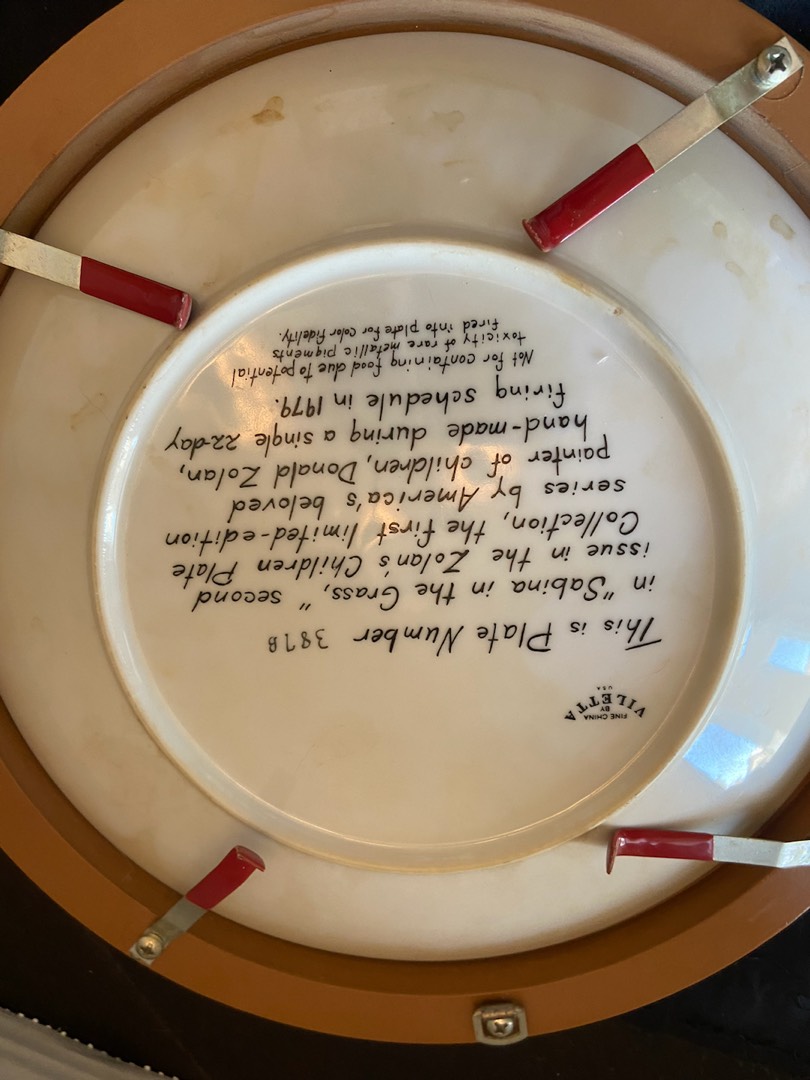 FINE CHINA
BY
VILETTA
USA
This is Plate Number 387B
in "Sabina in the Grass," second
issue in the Zolan's Children Plate
Collection, the first limited-edition
series by America's beloved
painter of children, Donald Zolan,
hand-made during a single 22-day
firing schedule in 1979.
Not for containing food due to potential
toxicity of rare metallic pigments
fired into plate for color fidelity.